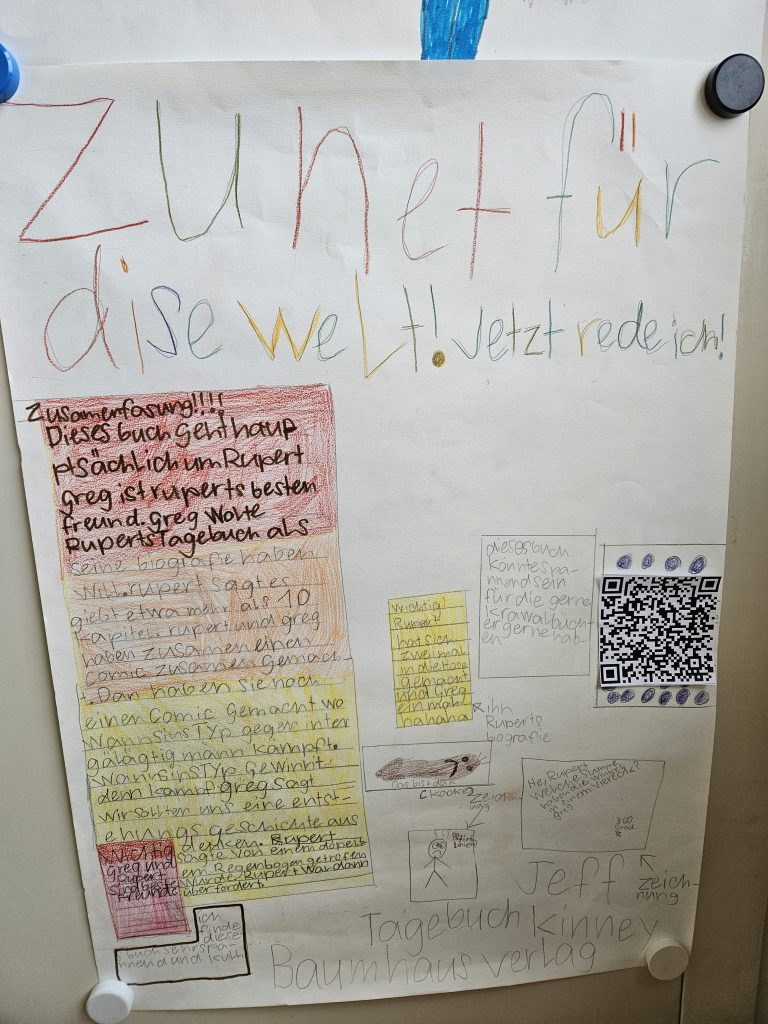 Zu net für
dise welt! Jetzt rede ich!
Zusamerfasung!!!!
Dieses buch geht haup
ptsächlich um Rupert
greg ist ruperts bester
freund. greg wolte
Ruperts Tagebuch als
seine biografie haben
will. rupert sagt es
giebt etwa mehr als 10
kapitel. rupert und greg
haben zusamen einen
comic zusamen gemach-
. Dan haben sie noch
einen Comic gemacht wo
wannsins Typ gegen inter
galägtig männ kämpft.
wannsins Typ gewinnt
denn kampf. greg sagt
wir sollten uns eine entst-
ehungs geschichte aus
denken. Rupert
sagte von einem dopelt
em Regenbogen getrofen
wurde. Rupert war dan
über fordert.
wichtig
greg und
rupert
sind beste
freunde
ich
finde
diese
s buch sehr spa-
nnend und kull.
wichtig!
Rupert
hat sich
zwei mal
in die Hose
gemacht
und Greg
ein mahl
hahaha
ihn
Ruperts
biografie
dieses buch
könnte spa-
nnend sein
für die gerne
krawal buch
er gerne hab-
en-
Das bist du
Zeich-
nung
Hej Rupert
welche
haben die winkel
in einem viereck?
360
Grad
Zeich-
nung
Jeff
Tagebuch Kinney
Baumhaus verlag